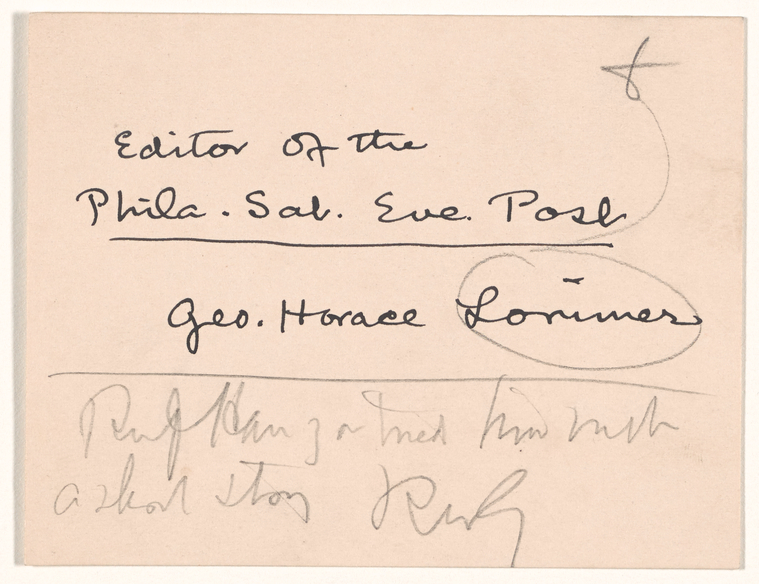 Editor of the
Phila. Sat. Eve. Post
Geo. Horace Lorimer
tried him with
a short story